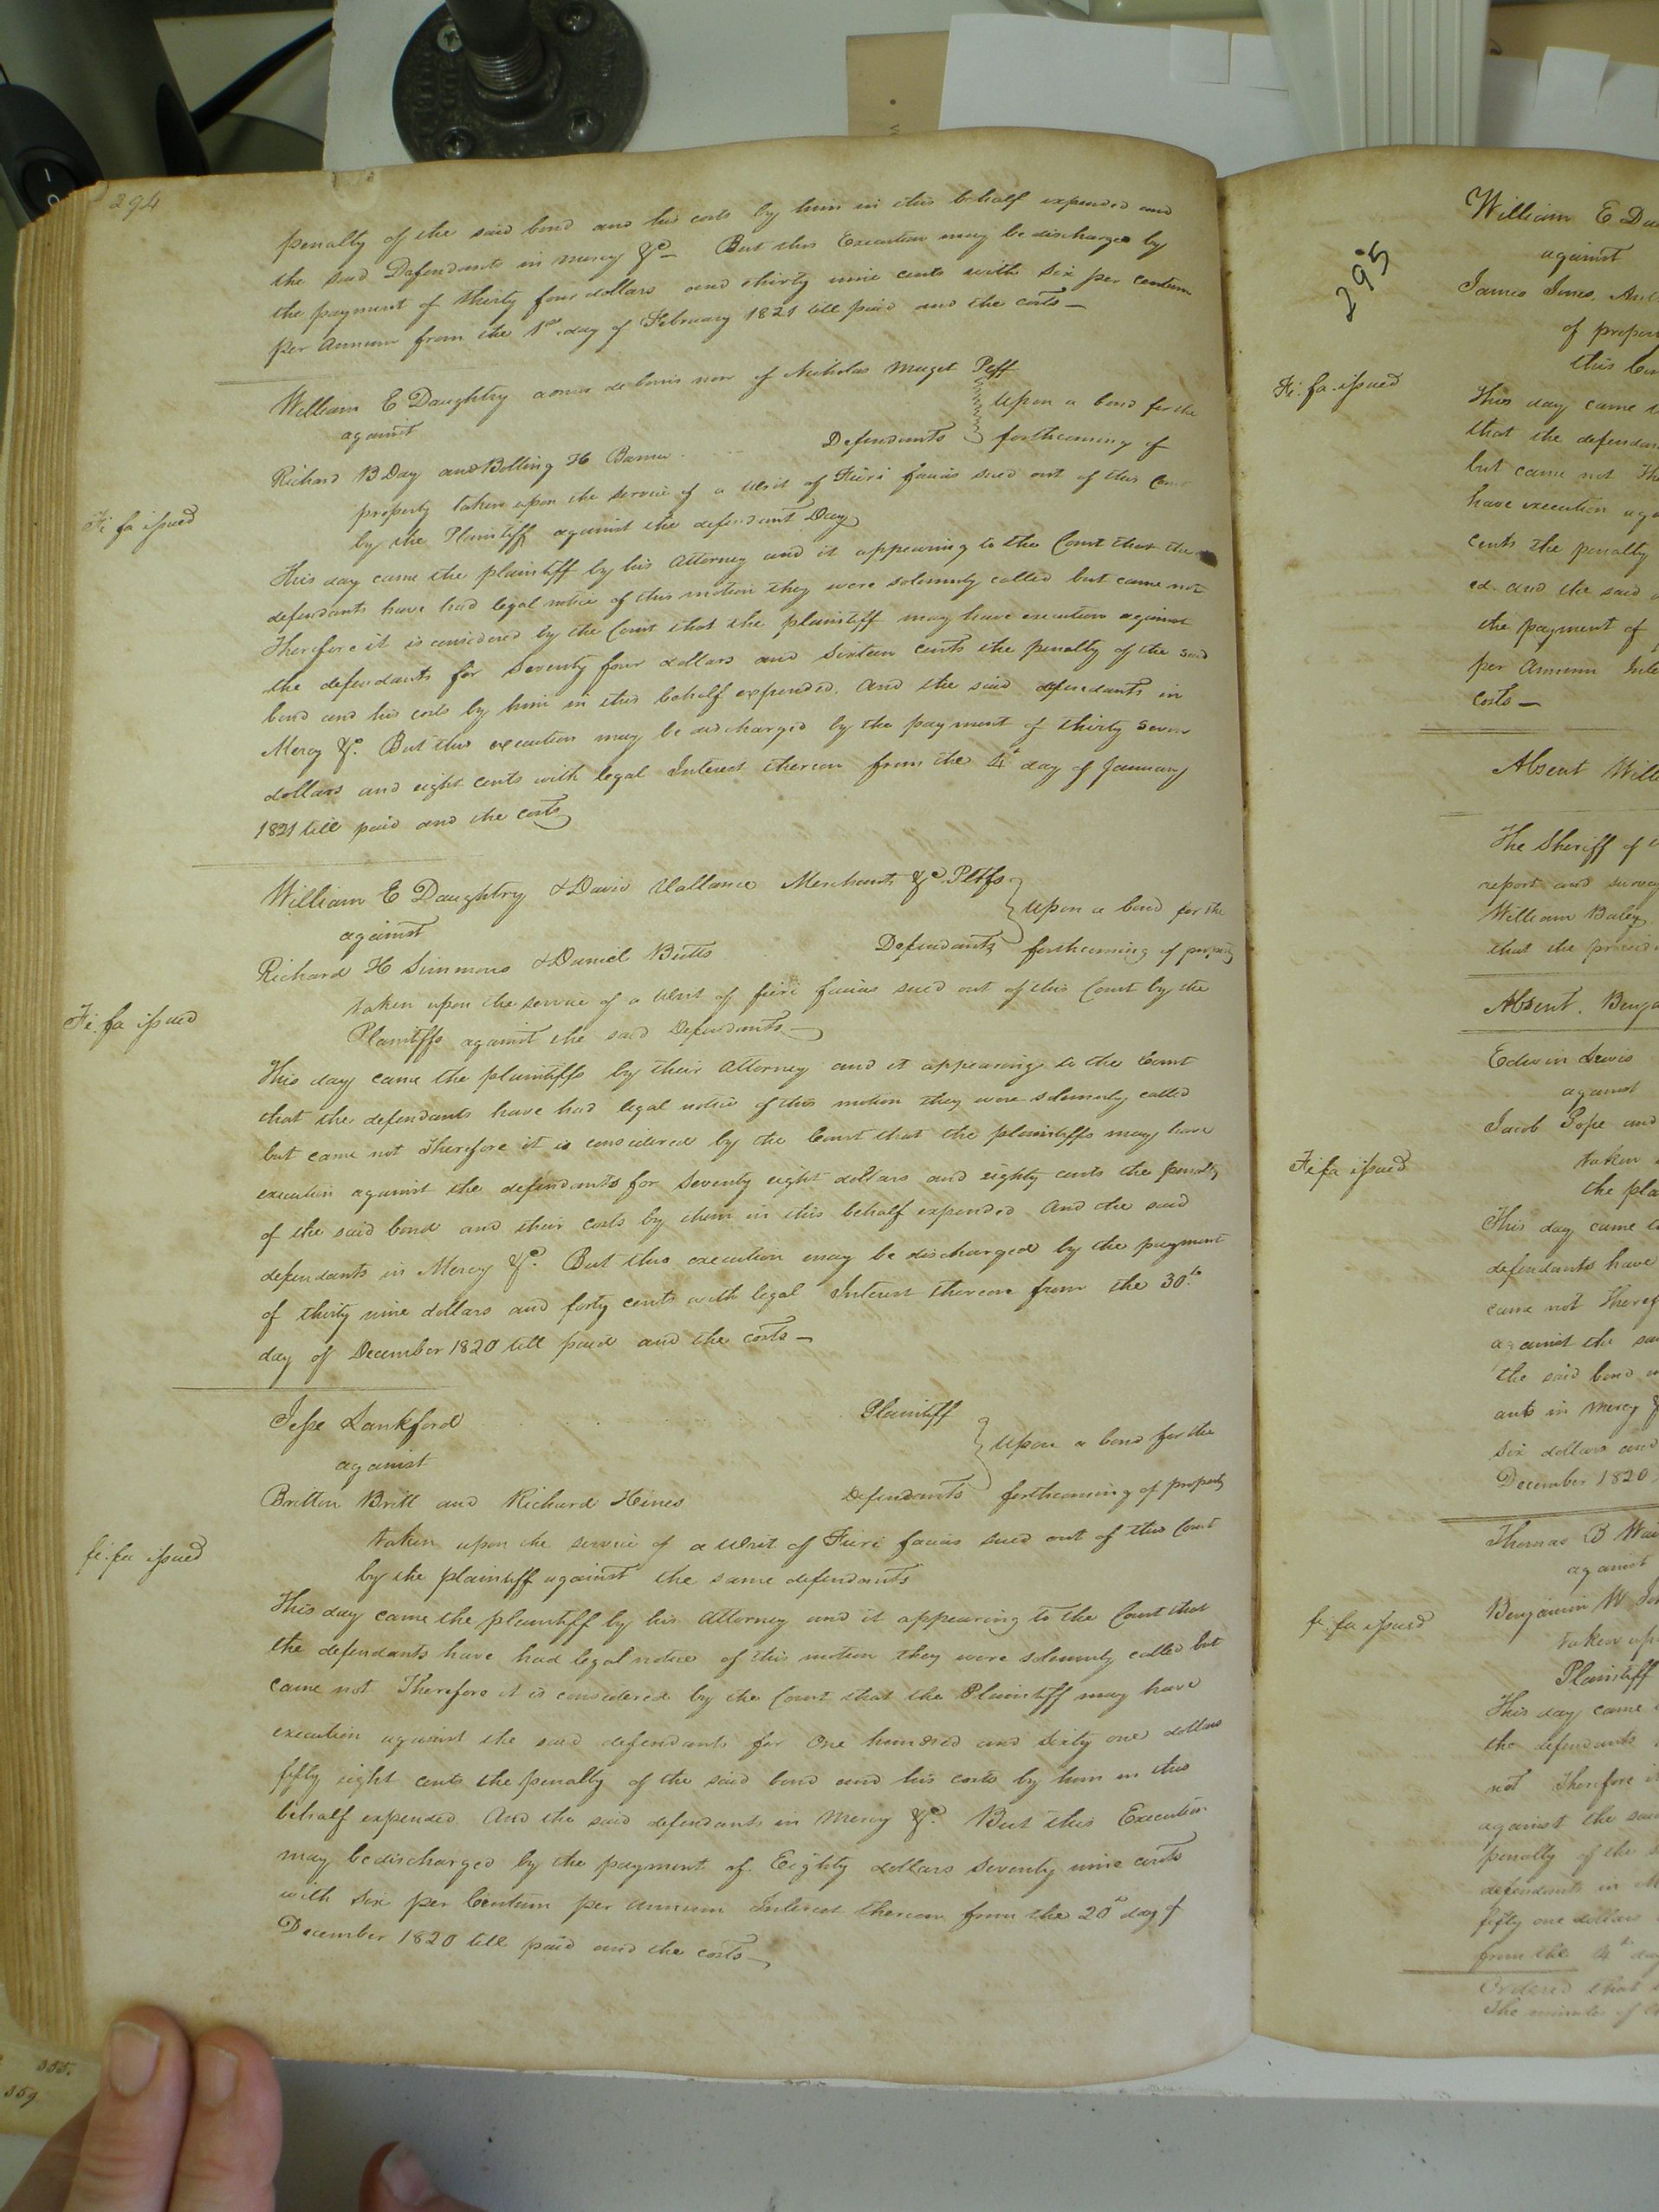 294
penalty of the said bond and his costs by him in this behalf expended and
the said Defendants in mercy &c – But this Execution may be discharged by
the payment of thirty four dollars and thirty nine cents with six per centum
per Annum from the 1st day of February 1821 till paid and the costs –
William E Daughtry admr de bonis non of Nicholas Maget Peff
against
upon a bond for the
Richard B Day and Bolling H Barner Defendants forthcoming of
Fi fa issued
property taken upon the service of a Writ of Fieri facias sued out of this Court
by the Plaintiff against the defendant Day
This day came the plaintiff by his Attorney and it appearing to the Court that the
defendants have had legal notice of this motion they were solemnly called but came not
Therefore it is considered by the Court that the plaintiff may have execution against
the defendants for Seventy four dollars and Sixteen Cents the penalty of the said
bond and his costs by him in this behalf expended. And the said defendants in
Mercy &c. But this execution may be discharged by the payment of thirty seven
dollars and eight Cents with legal Interest thereon from the 4th day of January
1821 till paid and the costs
William E Daughtry & David Vallance Merchants &c. Pltfs
against
upon a bond for the
Richard H Simmons & Daniel Butts Defendants forthcoming of property
Fi. fa issued
taken upon the service of a Writ of fieri facias sued out of this Court by the
Plaintiffs against the said Defendants –
This day came the plaintiffs by their Attorney and it appearing to the Court
that the defendants have had legal notice of this motion they were solemnly called
but came not Therefore it is considered by the Court that the plaintiffs may have
execution against the defendants for Seventy eight dollars and eighty cents the penalty
of the said bond and their costs by them in this behalf expended And the said
defendants in Mercy &c. But this execution may be discharged by the payment
of thirty nine dollars and forty cents with legal Interest thereon from the 30th
day of December 1820 till paid and the costs –
Jesse Lankford Plaintiff
against
upon a bond for the
Britton Britt and Richard Hines Defendants forthcoming of property
fi. fa issued
taken upon the service of a Writ of Fieri facias sued out of this Court
by the plaintiff against the same defendants
This day came the plaintiff by his Attorney and it appearing to the Court that
the defendants have had legal notice of this motion they were solemnly called but
came not Therefore it is considered by the Court that the Plaintiff may have
execution against the said defendants for One hundred and Sixty one dollars
fifty eight cents the penalty of the said bond and his costs by him in this
behalf expended And the said defendants in Mercy &c. But this Execution
may be discharged by the payment of Eighty dollars Seventy nine cents
with Six per Centum per annum Interest thereon from the 20th day of
December 1820 till paid and the costs –
295
William E
against
James Jones
of
this
Fi. fa. issued
This day came
that the
but came not
have execution
cents the penalty
ed and the said
the payment of
per Annum
costs –
Absent
The Sheriff of
report and
William Baley
that the
Absent.
Edwin Lewis
against
Jacob Pope and
Fi fa issued
taken
the
This day came
defendants have
came not
against the
the said bond
ants in mercy
Six dollars and
December 1820
Thomas B
against
Benjamin W
fi. fa issued
taken
Plaintiff
This day came
the defendants
not Therefore
against the
penalty of the
defendants in
fifty one dollars
from the 4th
Ordered that
The minutes of
355.
359